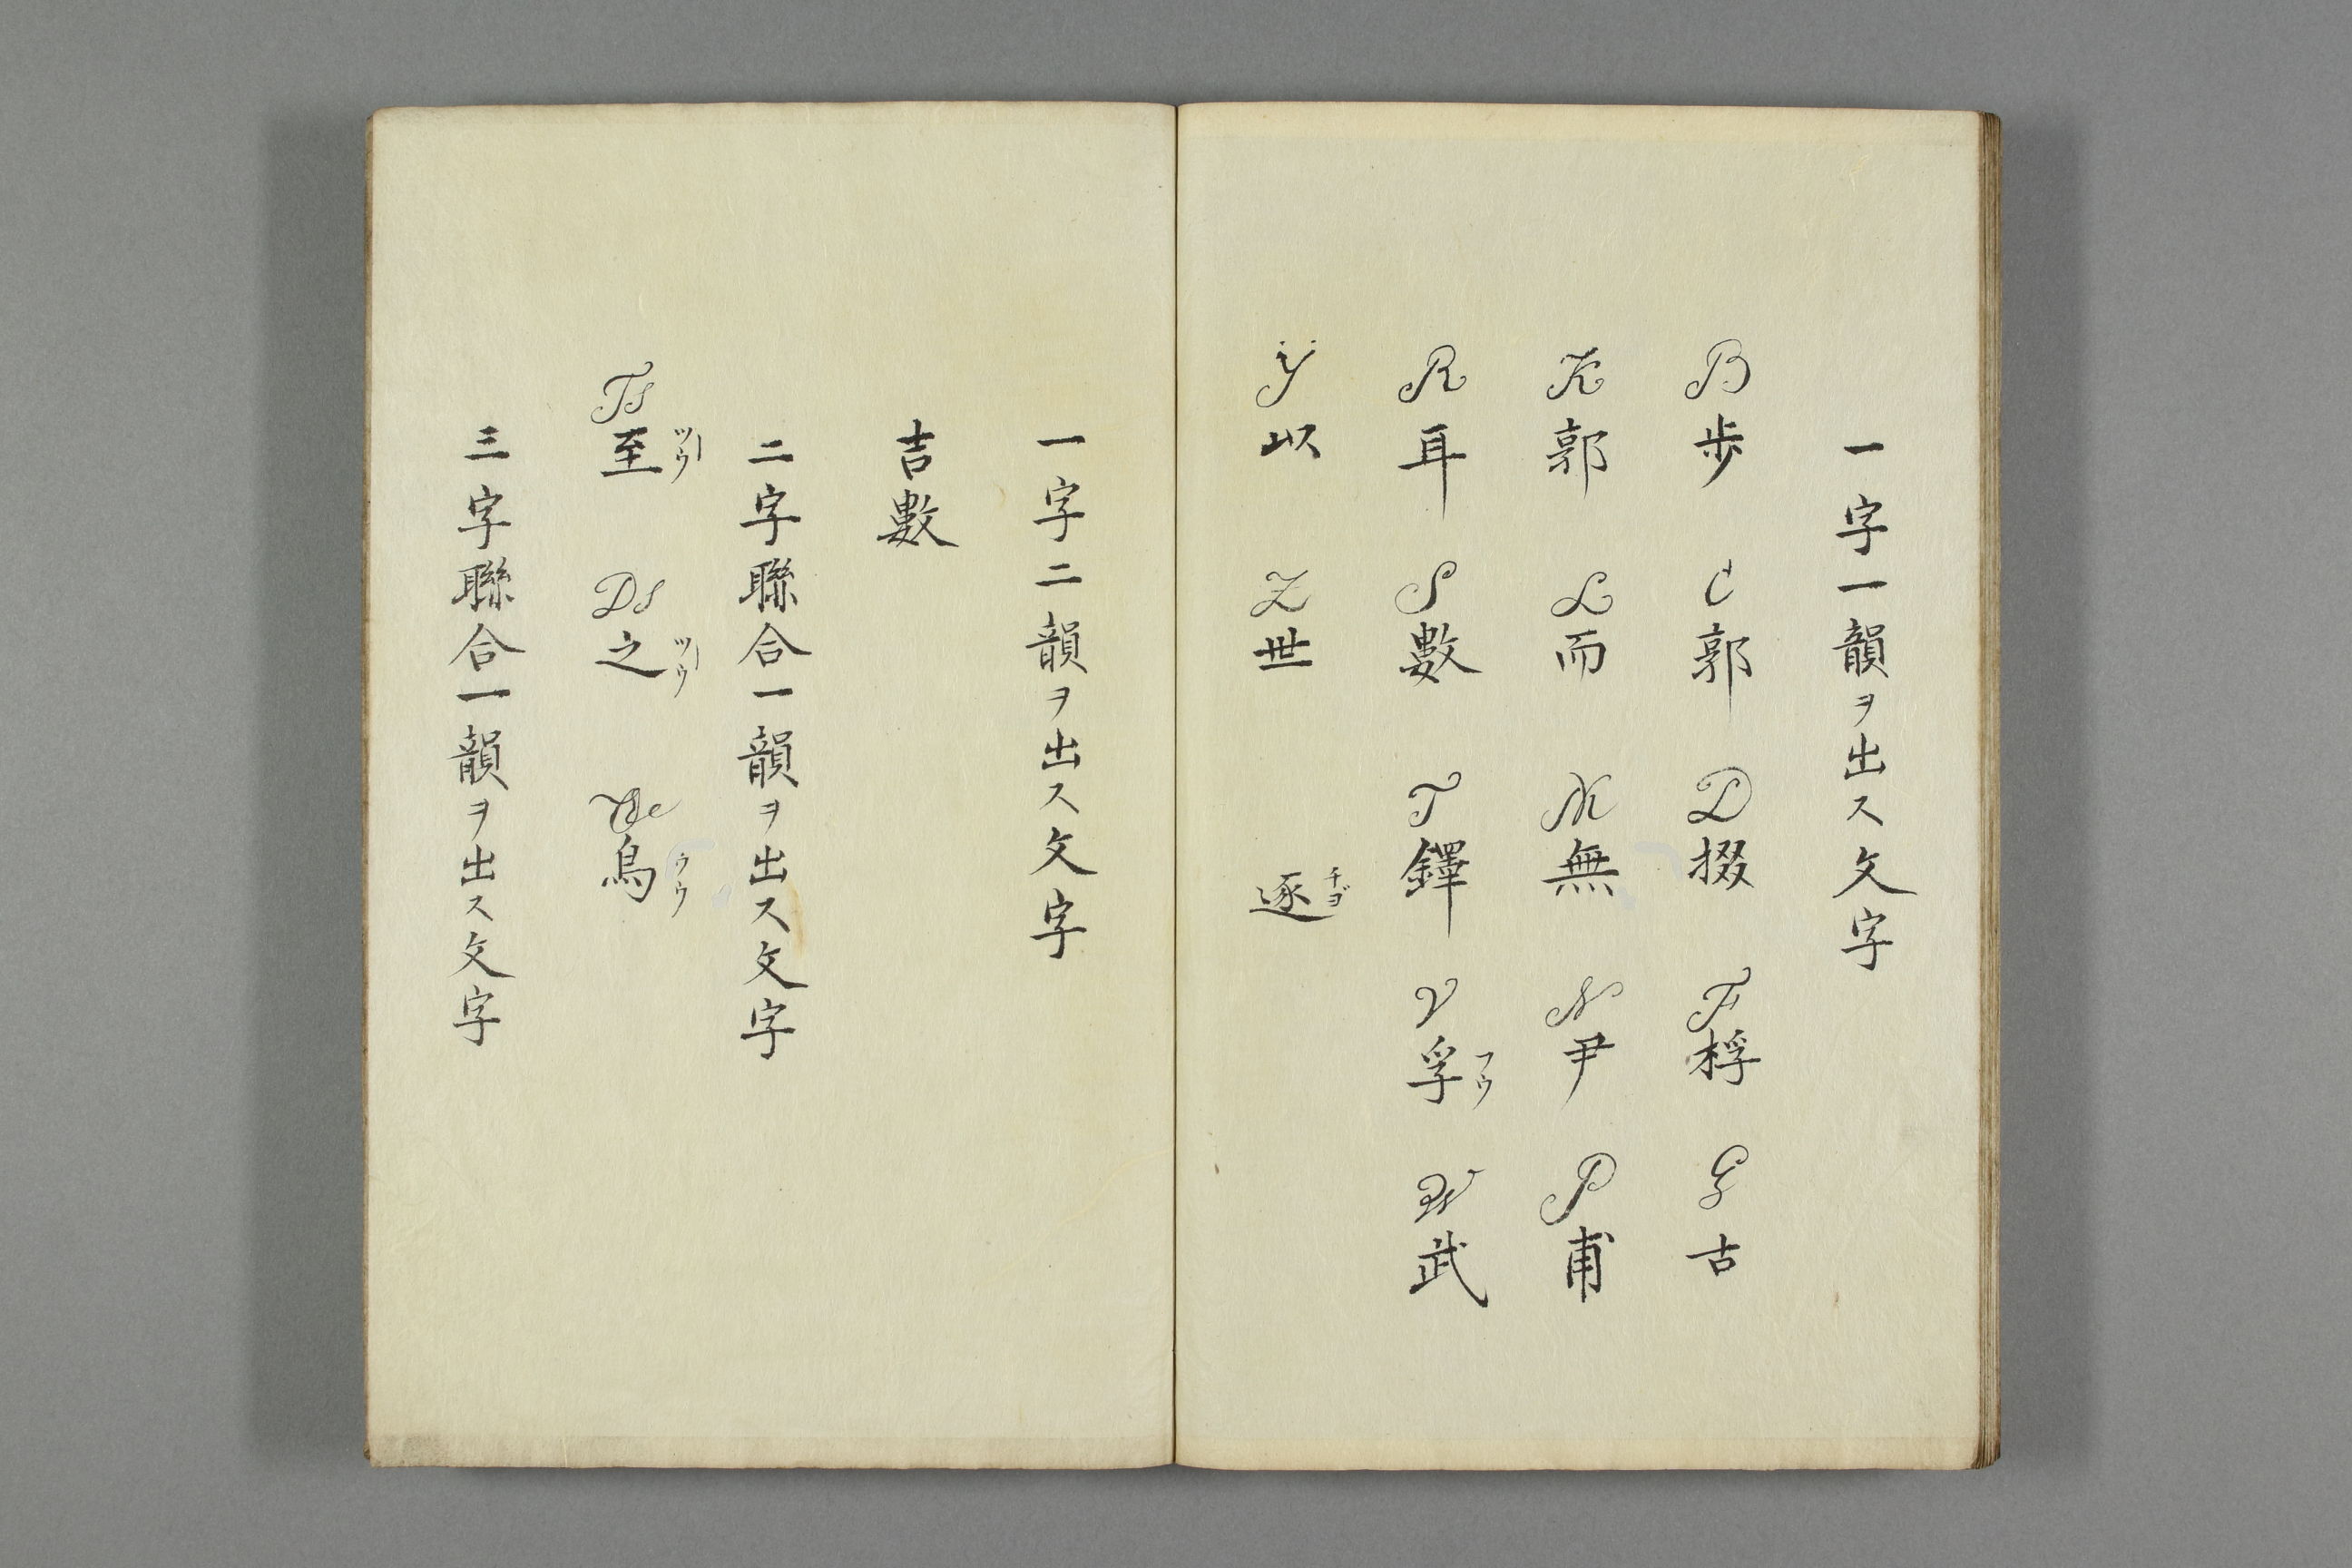 一字一韻ヲ出ス文字
B歩 C郭 D掇 F桴 G古
K郭 L而 M無 N尹 P甫
R耳 S數 T鐸 V孚フウ W武
ÿ以 Z世 逐チヨ
一字二韻ヲ出ス文字
吉數
二字聯合一韻ヲ出ス文字
Ts至ツウ Ds之ツウ 烏ウウ
三字聯合一韻ヲ出ス文字